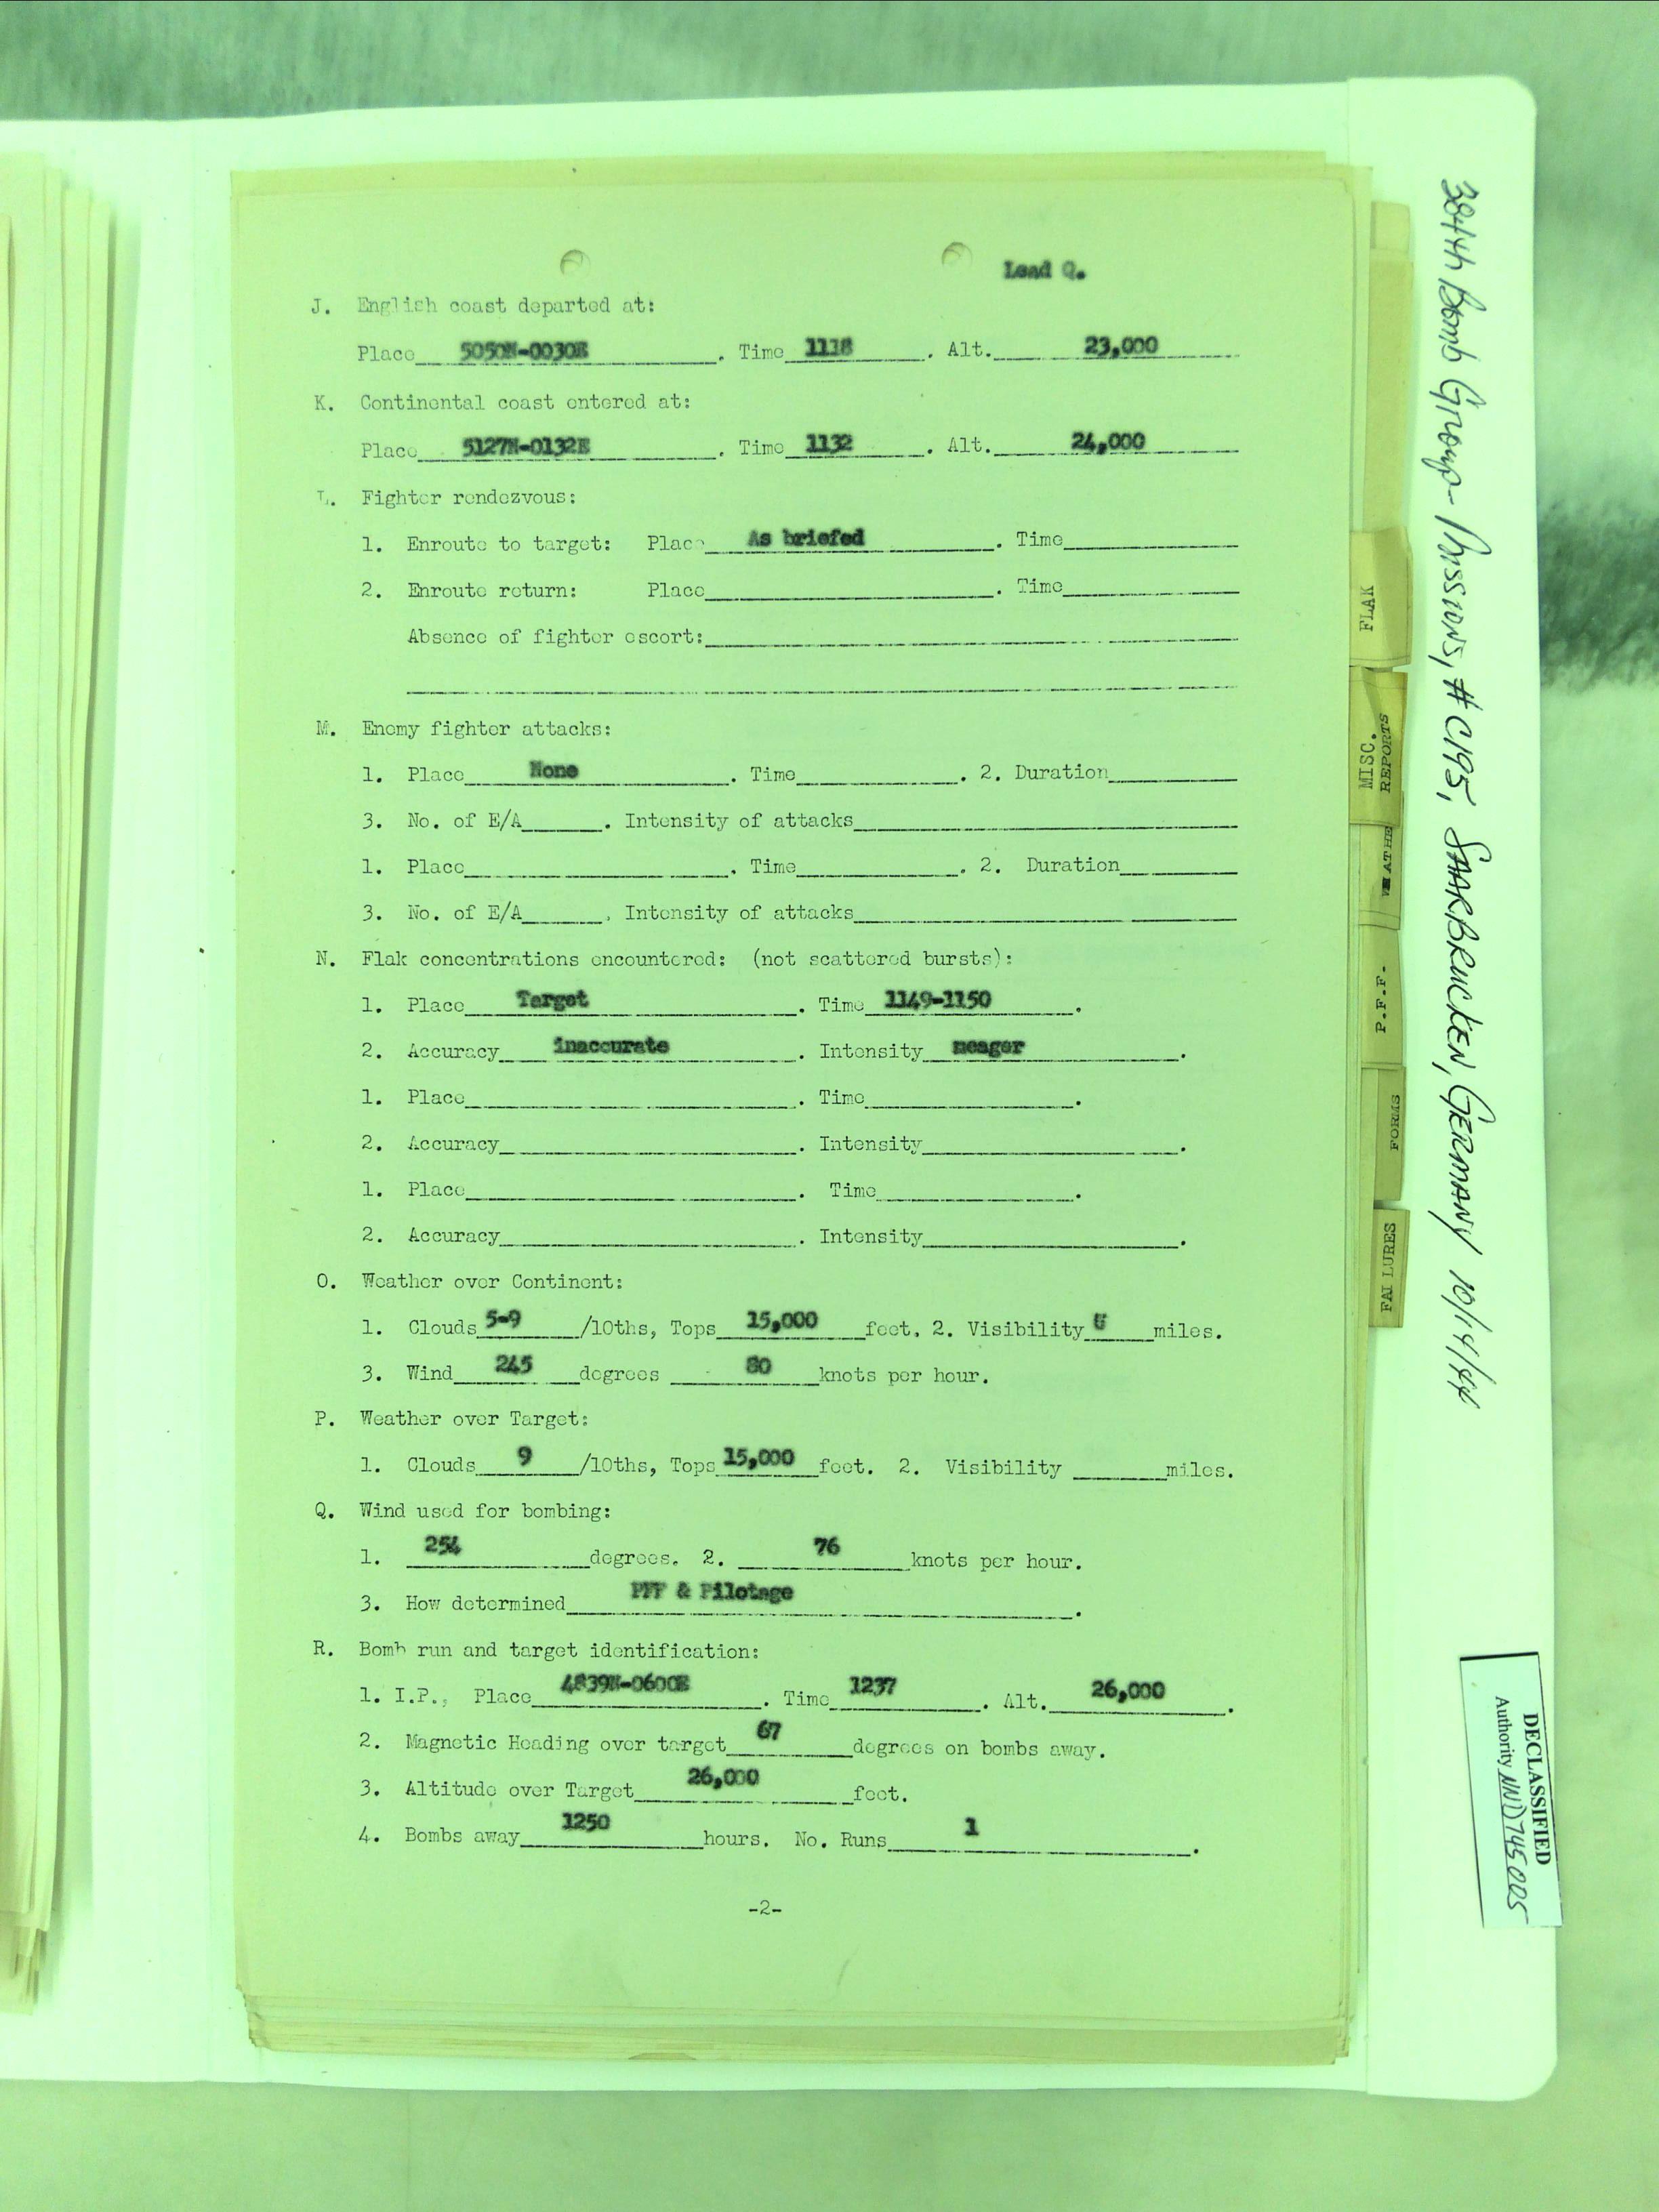 Lead Q.
J. English coast departed at:
Place 5050N-0030E. Time 1118. Alt. 23,000
K. Continental coast entered at:
Place 5127N-0132E. Time 1132. Alt. 24,000
L. Fighter rendezvous:
1. Enroute to target: Place As briefed. Time
2. Enroute return: Place. Time
Absence of fighter escort:
M. Enemy fighter attacks:
1. Place None. Time. 2. Duration
3. No. of E/A. Intensity of attacks
1. Place. Time. 2. Duration
3. No. of E/A. Intensity of attacks
N. Flak concentrations encountered: (not scattered bursts):
1. Place Target. Time 1149-1150.
2. Accuracy inaccurate. Intensity meager.
1. Place. Time.
2. Accuracy. Intensity.
1. Place. Time.
2. Accuracy. Intensity.
O. Weather over Continent:
1. Clouds 5-9 /10ths, Tops 15,000 feet. 2. Visibility miles.
3. Wind 245 degrees 80 knots per hour.
P. Weather over Target:
1. Clouds 9 /10ths, Tops 15,000 feet. 2. Visibility miles.
Q. Wind used for bombing:
1. 254 degrees. 2. 76 knots per hour.
3. How determined PFF & Pilotage.
R. Bomb run and target identification:
1. I.P., Place 4839N-0600E. Time 1237. Alt. 26,000.
2. Magnetic Heading over target 67 degrees on bombs away.
3. Altitude over Target 26,000 feet.
4. Bombs away 1250 hours. No. Runs 1.
-2-
FLAK
MISC.
REPORTS
P.F.F.
FORMS
FAILURES
384th Bomb Group - Missions, # C195, SAARBRUCKEN, GERMANY 10/14/44
DECLASSIFIED
Authority NND745005